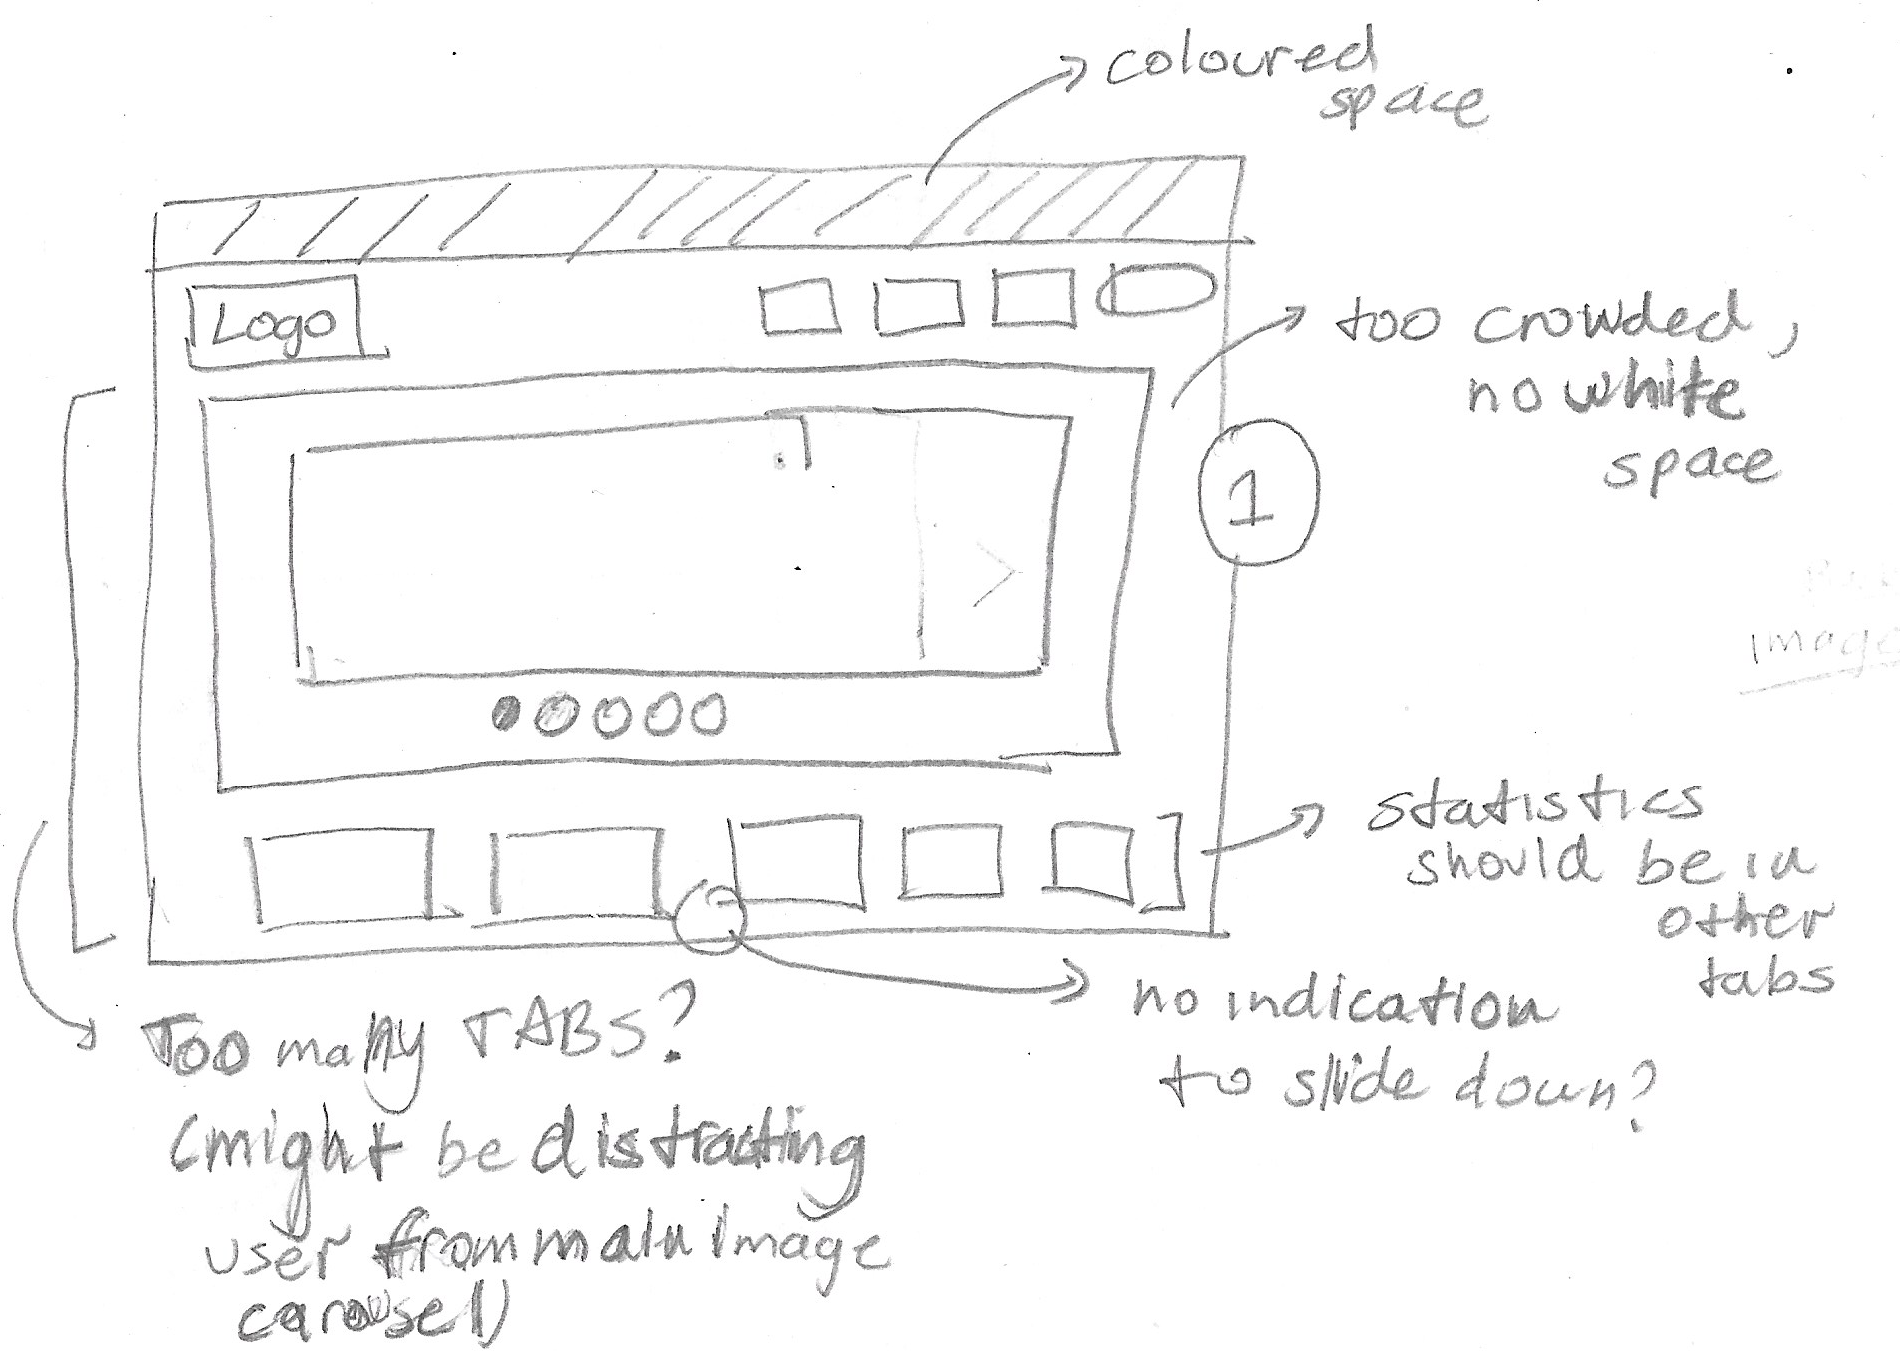 coloured
space
Logo
too crowded,
no white
space
1
image
statistics
should be in
other
tabs
no indication
to slide down?
Too many TABS?
(might be distracting
user from main image
carousel)